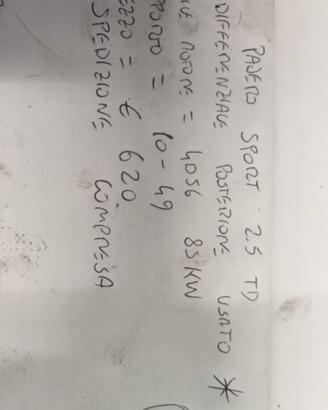 PAJERO SPORT 2.5 TD
DIFFERENZIALE POSTERIORE USATO *
MOTORE = 4D56 85 KW
= 10-49
= € 620
SPEDIZIONE COMPRESA